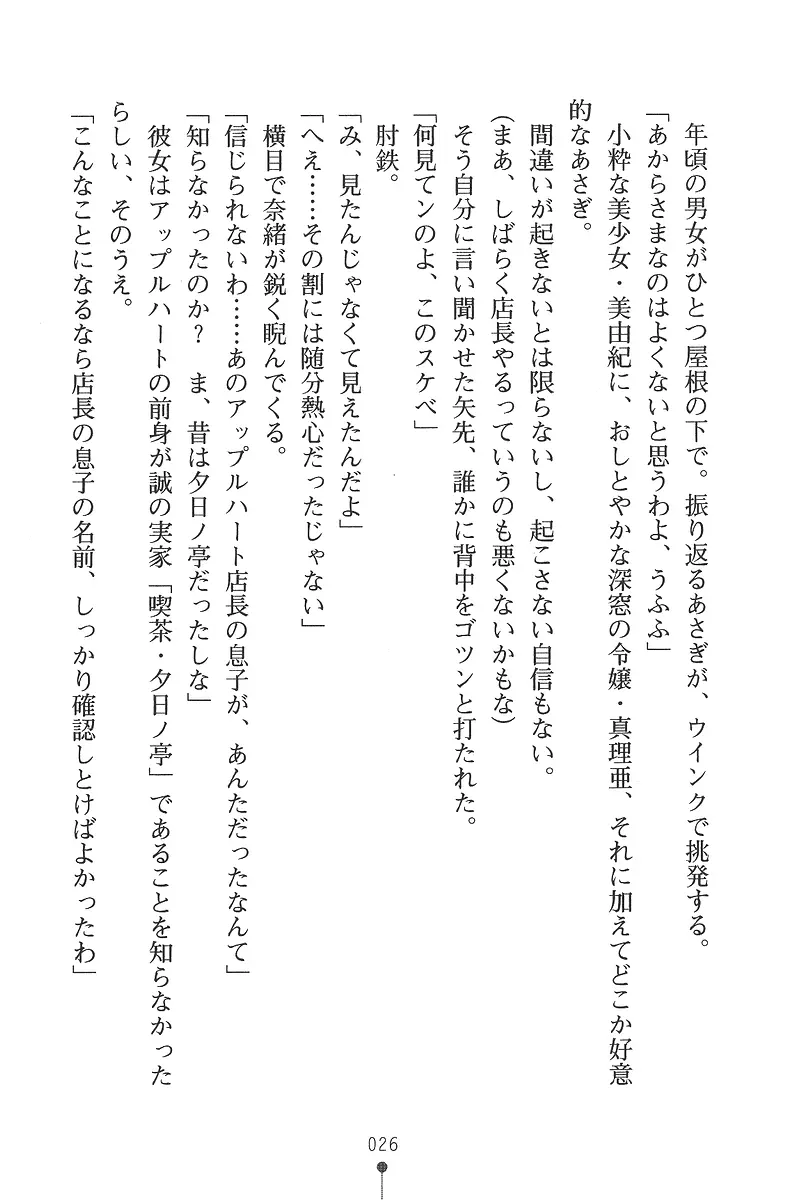 年頃の男女がひとつ屋根の下で。振り返るあさぎが、ウインクで挑発する。
「あからさまなのはよくないと思うわよ、うふふ」
小粋な美少女・美由紀に、おしとやかな深窓の令嬢・真理亜、それに加えてどこか好意
的なあさぎ。
間違いが起きないとは限らないし、起こさない自信もない。
(まあ、しばらく店長やるっていうのも悪くないかもな)
そう自分に言い聞かせた矢先、誰かに背中をゴツンと打たれた。
「何見てンのよ、このスケベ」
肘鉄。
「み、見たんじゃなくて見えたんだよ」
「へえ……その割には随分熱心だったじゃない」
横目で奈緒が鋭く睨んでくる。
「信じられないわ……あのアップルハート店長の息子が、あんただったなんて」
「知らなかったのか？　ま、昔は夕日ノ亭だったしな」
彼女はアップルハートの前身が誠の実家「喫茶・夕日ノ亭」であることを知らなかった
らしい、そのうえ。
「こんなことになるなら店長の息子の名前、しっかり確認しとけばよかったわ」
026